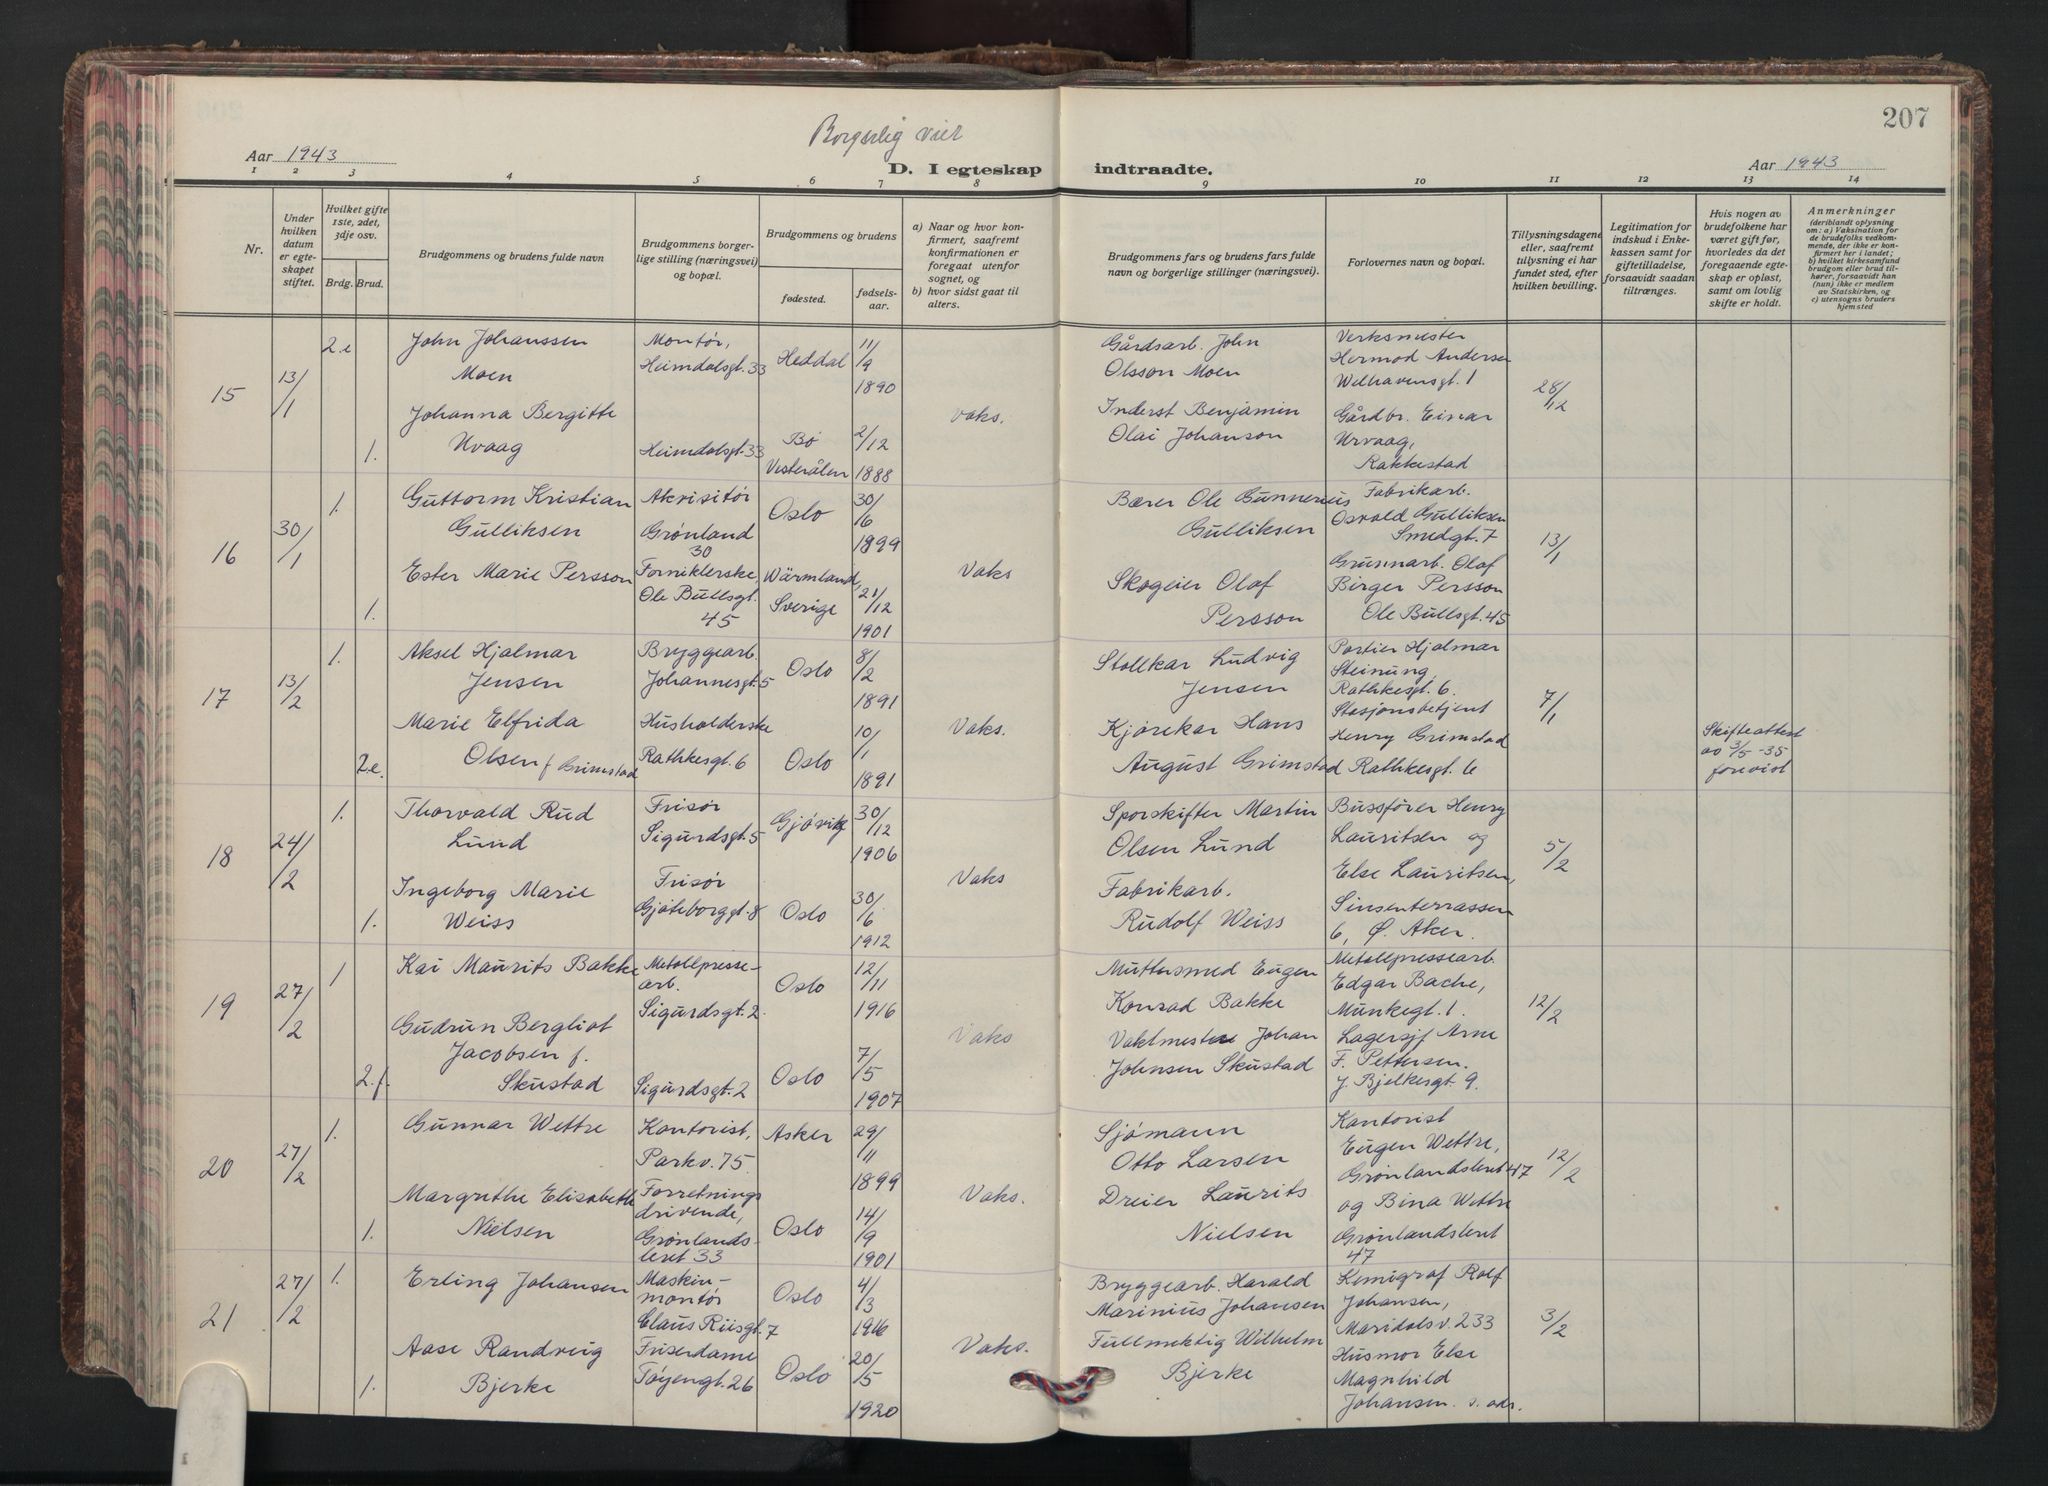 207
Borgerlig viet
Aar 1943
D. I egteskap indtraadte.
Aar 1943
1 2 3 4 5 6 7 8 9 10 11 12 13 14
Nr.
Under hvilken datum er egteskapet stiftet.
Hvilket gifte 1ste, 2det, 3dje osv.
Brdg. Brud.
Brudgommens og brudens fulde navn
Brudgommens borgerlige stilling (næringsvei) og bopæl.
Brudgommens og brudens
fødested.
fødselsaar.
a) Naar og hvor konfirmert, saafremt konfirmationen er foregaat utenfor sognet, og
b) hvor sidst gaat til alters.
Brudgommens fars og brudens fars fulde navn og borgerlige stillinger (næringsvei).
Forlovernes navn og bopæl.
Tillysningsdagene eller, saafremt tillysning ei har fundet sted, efter hvilken bevilling.
Legitimation for indskud i Enkekassen samt for giftetilladelse, forsaavidt saadan tiltrænges.
Hvis nogen av brudefolkene har været gift før, hvorledes da det foregaaende egteskap er opløst, samt om lovlig skifte er holdt.
Anmerkninger
(deriblandt oplysning om: a) Vaksination for de brudefolks vedkommende, der ikke er konfirmert her i landet; b) hvilket kirkesamfund brudgom eller brud tilhører, forsaavidt han (hun) ikke er medlem av Statskirken, og c) utensogns bruders hjemsted
15
13/1
2.e
John Johanssen
Moen
Montør,
Heimdalsgt. 33
Heddal
11/9
1890
Johanna Bergitte
Urvaag
1.
Heimdalsgt. 33
Bø
Vesterålen
2/12
1888
vaks.
Gårdsarb. John
Olsson Moen
Inderst Benjamin
Olai Johanson
Verksmester
Hermod Andersen
Welhavensgt. 1
Gårdbr. Einar
Urvaag,
Rakkestad
28/12
16
30/1
1.
Guttorm Kristian
Gulliksen
Akvisitør
Grønland
30
Oslo
30/6
1899
Ester Marie Persson
1.
Forniklerske,
Ole Bullsgt.
45
Wärmland,
Sverige
21/12
1901
Vaks
Bærer Ole Gunnerius
Gulliksen
Skogeier Olaf
Persson
Fabrikarb.
Osvald Gulliksen
Smedgt. 7
Grunnarb. Olaf
Birger Persson
Ole Bullsgt. 45
13/1
17
13/2
1.
Aksel Hjalmar
Jensen
Bryggearb.
Johannesgt. 5
Oslo
8/2
1891
Marie Elfrida
Olsen f. Grimstad
2.e.
Husholderske
Rathkesgt. 6
Oslo
10/1
1891
Vaks.
Stallkar Ludvig
Jensen
Kjørekar Hans
August Grimstad
Portier Hjalmar
Steinung,
Rathkesgt. 6.
Stasjonsbetjent
Henry Grimstad
Rathkesgt. 6
7/1
Skifteattest
av 3/5-35
forevist
18
24/2
1.
Thorvald Rud
Lund
Frisør
Sigurdsgt. 5
Gjøvik
30/12
1906
Ingeborg Marie
Weiss
1.
Frisør
Gjøteborggt. 8
Oslo
30/6
1912
Vaks
Sporskifter Martin
Olsen Lund
Fabrikarb.
Rudolf Weiss
Bussfører Henry
Lauritsen og
Else Lauritsen,
Sinsenterrassen
6, Ø. Aker.
5/2
19
27/2
1
Kai Maurits Bakke
Metallpresse-
arb.
Sigurdsgt. 2.
Oslo
12/11
1916
Gudrun Bergliot
Jacobsen f.
Skustad
2.f.
Sigurdsgt. 2
Oslo
7/5
1907
Vaks
Muttersmed Eugen
Konrad Bakke
Vaktmester Johan
Johnsen Skustad
Metallpressearb.
Edgar Bache,
Munkegt. 1.
Lagersjf Arne
F. Pettersen.
J. Bjelkesgt. 9.
12/2
20
27/2
1.
Gunnar Wettre
Kontorist,
Parkv. 75.
Asker
29/11
1899
Margrethe Elisabeth
Nielsen
1.
Forretnings
drivende,
Grønlands-
leret 33
Oslo
14/9
1901
Vaks.
Sjømann
Otto Larsen
Dreier Laurits
Nielsen
Kontorist
Eugen Wettre,
Grønlandsleret 47
og Bina Wettre
Grønlandsleret
47
12/2
21
27/2
1.
Erling Johansen
Maskin-
montør
Claus Riisgt. 7
Oslo
4/3
1916
Aase Randveig
Bjerke
1.
Friserdame
Tøyengt. 26
Oslo
20/5
1920
Vaks.
Bryggearb. Harald
Marinius Johansen
Fullmektig Wilhelm
Bjerke
Kemigraf Rolf
Johansen,
Maridalsv. 233
Husmor Else
Magnhild
Johansen. s. ads.
3/2